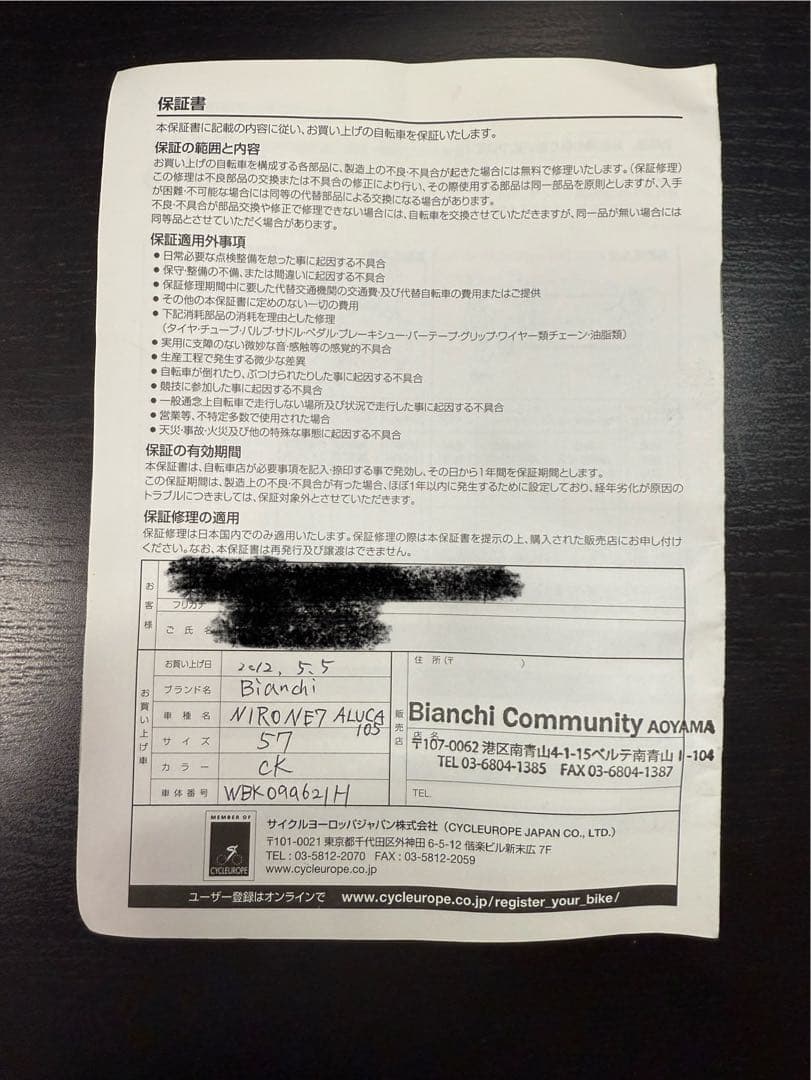 保証書
本保証書に記載の内容に従い、お買い上げの自転車を保証いたします。
保証の範囲と内容
お買い上げの自転車を構成する各部品に、製造上の不良・不具合が起きた場合には無料で修理いたします。(保証修理)
この修理は不良部品の交換または不具合の修正により行い、その際使用する部品は同一部品を原則としますが、入手
が困難・不可能な場合には同等の代替部品による交換になる場合があります。
不良・不具合が部品交換や修正で修理できない場合には、自転車を交換させていただきますが、同一品が無い場合には
同等品とさせていただく場合があります。
保証適用外事項
● 日常必要な点検整備を怠った事に起因する不具合
● 保守・整備の不備、または間違いに起因する不具合
● 保証修理期間中に要した代替交通機関の交通費・及び代替自転車の費用またはご提供
● その他の本保証書に定めのない一切の費用
● 下記消耗部品の消耗を理由とした修理
(タイヤ・チューブ・バルブ・サドル・ペダル・ブレーキシュー・バーテープ・グリップ・ワイヤー類チェーン・油脂類)
● 実用に支障のない微妙な音・感触等の感覚的不具合
● 生産工程で発生する微少な差異
● 自転車が倒れたり、ぶつけられたりした事に起因する不具合
● 競技に参加した事に起因する不具合
● 一般通念上自転車で走行しない場所及び状況で走行した事に起因する不具合
● 営業等、不特定多数で使用された場合
● 天災・事故・火災及び他の特殊な事態に起因する不具合
保証の有効期間
本保証書は、自転車店が必要事項を記入・捺印する事で発効し、その日から1年間を保証期間とします。
この保証期間は、製造上の不良・不具合が有った場合、ほぼ1年以内に発生するために設定しており、経年劣化が原因の
トラブルにつきましては、保証対象外とさせていただきます。
保証修理の適用
保証修理は日本国内でのみ適用いたします。保証修理の際は本保証書を提示の上、購入された販売店にお申し付け
ください。なお、本保証書は再発行及び譲渡はできません。
お客様
フリガナ
ご氏名
お買い上げ車
お買い上げ日 2012, 5.5
ブランド名 Bianchi
車種名 NIRONE7 ALUCA 105
サイズ 57
カラー CK
車体番号 WBK099621H
販売店
住所(〒 )
Bianchi Community AOYAMA
店名
〒107-0062 港区南青山4-1-15ベルテ南青山1-104
TEL 03-6804-1385 FAX 03-6804-1387
TEL.
MEMBER OF
CYCLEUROPE
サイクルヨーロッパジャパン株式会社(CYCLEUROPE JAPAN CO., LTD.)
〒101-0021 東京都千代田区外神田 6-5-12 偕楽ビル新末広 7F
TEL : 03-5812-2070 FAX : 03-5812-2059
www.cycleurope.co.jp
ユーザー登録はオンラインで www.cycleurope.co.jp/register_your_bike/